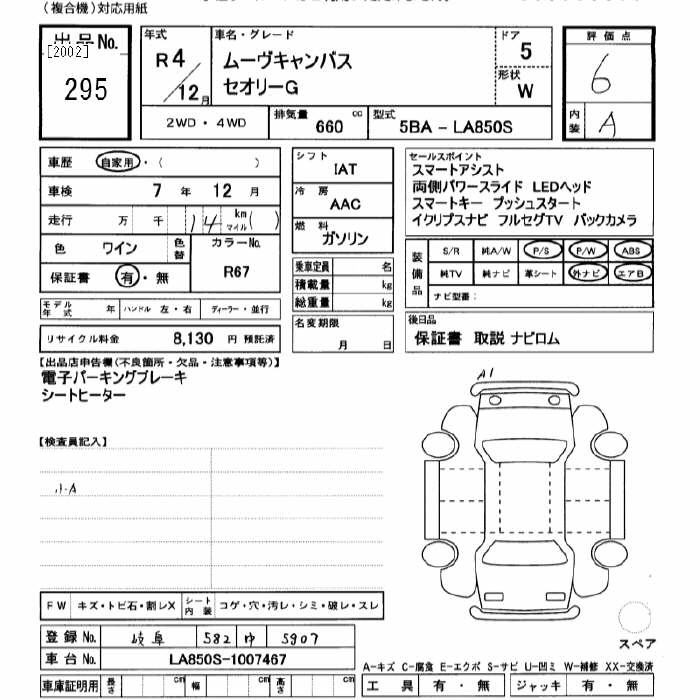 （複合機）対応用紙
出品No. [2002] 295
年式 R4／12月
車名・グレード ムーヴキャンバス セオリーG
ドア 5
形状 W
評価点 6
内装 A
2WD・4WD
排気量 660 cc
型式 5BA－LA850S
車歴 自家用・（ ）
車検 7年 12月
走行 万 千 14 km マイル（ ）
色 ワイン 色替
カラーNo. R67
保証書 有・無
モデル年式 年 ハンドル 左・右 ディーラー・並行
リサイクル料金 8,130 円 預託済
シフト IAT
冷房 AAC
燃料 ガソリン
乗車定員 名
積載量 kg
総重量 kg
名変期限 月 日
セールスポイント
スマートアシスト
両側パワースライド LEDヘッド
スマートキー プッシュスタート
イクリプスナビ フルセグTV バックカメラ
装備品 S/R 純A/W P/S P/W ABS
純TV 純ナビ 革シート 外ナビ エアB
ナビ型番：
後日品
保証書 取説 ナビロム
【出品店申告欄（不良箇所・欠品・注意事項等）】
電子パーキングブレーキ
シートヒーター
A1
【検査員記入】
小A
FW キズ・トビ石・割レX シート内装 コゲ・穴・汚レ・シミ・破レ・スレ
スペア
登録No. 岐阜 582 ゆ 5907
車台No. LA850S-1007467
A-キズ C-腐食 E-エクボ S-サビ U-凹ミ W-補修 XX-交換済
車庫証明用 長さ cm 幅 cm 高さ cm
工具 有・無 ジャッキ 有・無